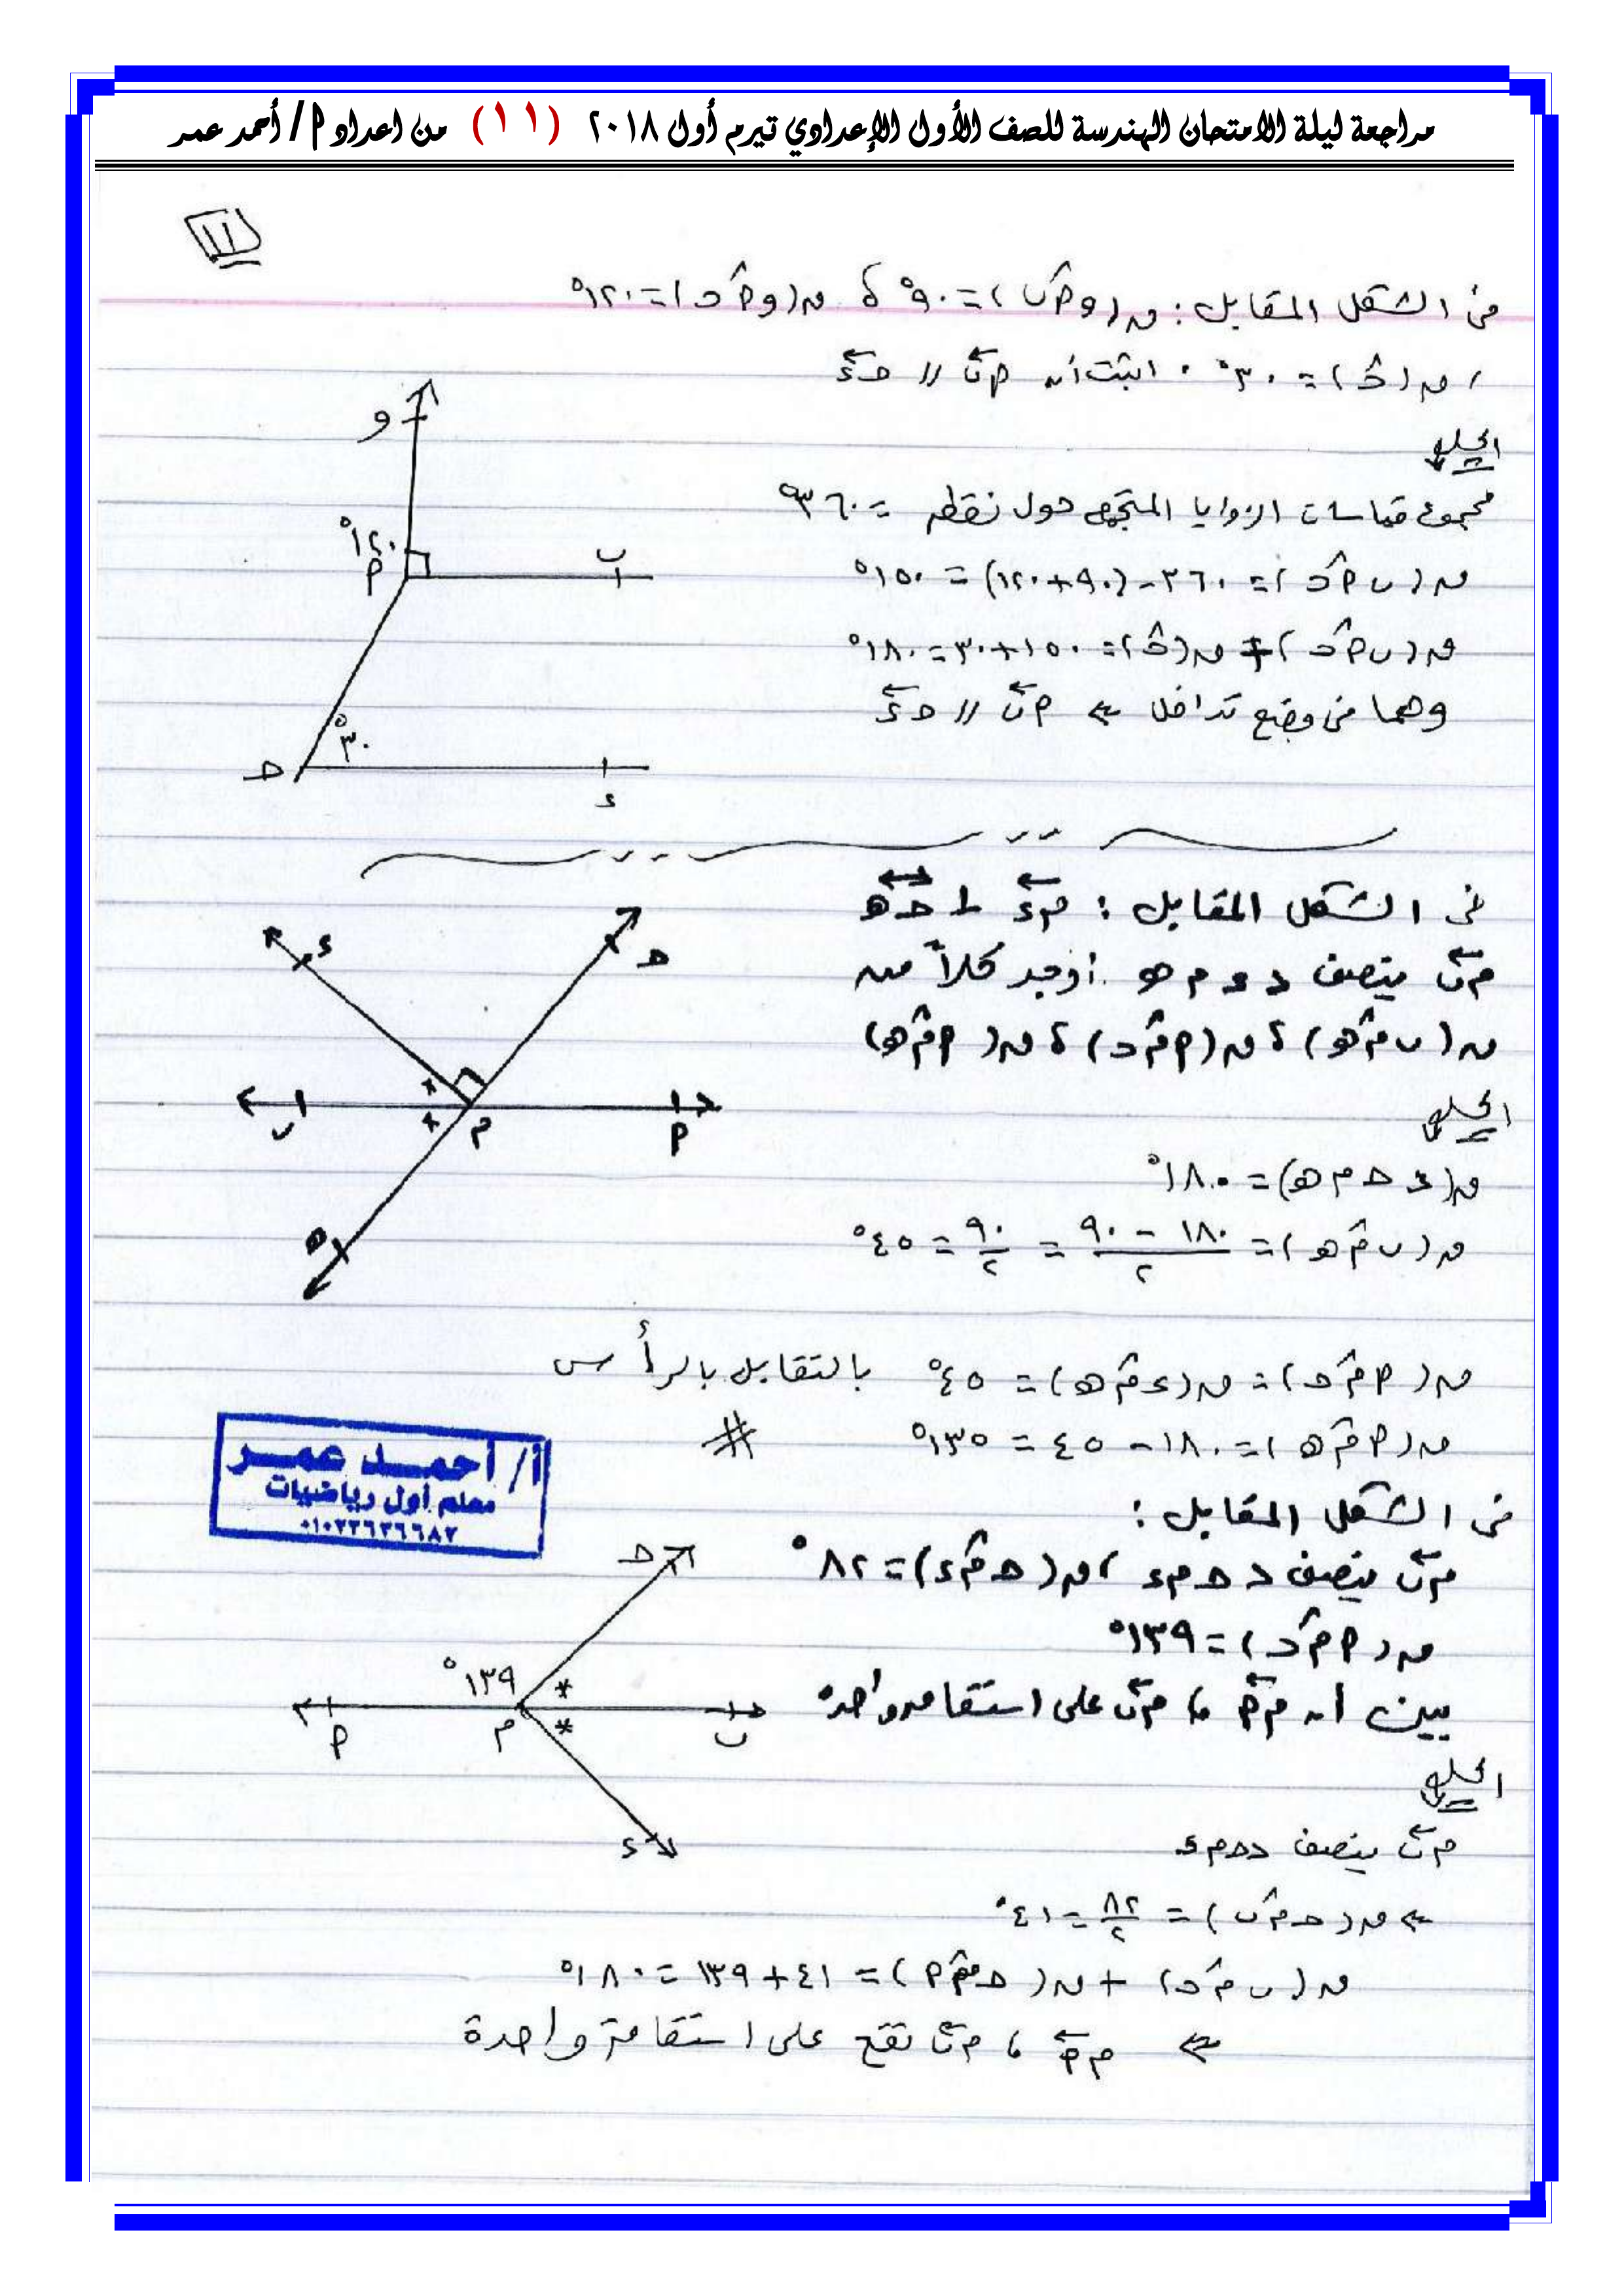 مراجعة ليلة الامتحان الهندسة للصف الأول الإعدادي تيرم أول ٢٠١٨ (١١) من اعداد أ/ أحمد عمر
١١
فى الشكل المقابل : ق(و أ ب) = ٩٠° ، ق(و أ حـ) = ١٢٠°
، ق(حـ) = ٣٠° . اثبت أن أب // حـ ء
الحل
مجموع قياسات الزوايا المتجمعة حول نقطة = ٣٦٠°
ق(ب أ حـ) = ٣٦٠ - (٩٠ + ١٢٠) = ١٥٠°
ق(ب أ حـ) + ق(حـ) = ١٥٠ + ٣٠ = ١٨٠°
وهما فى وضع تداخل ⇐ أب // حـ ء
و
١٢٠°
أ
ب
٣٠°
حـ
ء
فى الشكل المقابل : م ء ⊥ حـ هـ
م ب ينصف د ء م هـ أوجد كلاً من
ق(ب م هـ) ، ق(أ م حـ) ، ق(أ م هـ)
الحل
ق(د حـ م هـ) = ١٨٠°
ق(ب م هـ) = ١٨٠ - ٩٠ / ٢ = ٩٠ / ٢ = ٤٥°
ق(أ م حـ) = ق(ء م هـ) = ٤٥° بالتقابل بالرأس
ق(أ م هـ) = ١٨٠ - ٤٥ = ١٣٥° #
ء
حـ
ب
م
أ
هـ
أ/ أحمد عمر
معلم أول رياضيات
٠١٠٢٢٦٢٦٦٨٢
فى الشكل المقابل :
م ب ينصف د حـ م ء ، ق(حـ م ء) = ٨٢°
ق(أ م حـ) = ١٣٩°
بين أن م أ ، م ب على استقامه واحده
الحل
م ب ينصف د حـ م ء
⇐ ق(حـ م ب) = ٨٢ / ٢ = ٤١°
ق(ب م حـ) + ق(حـ م أ) = ٤١ + ١٣٩ = ١٨٠°
⇐ م أ ، م ب تقع على استقامة واحدة
حـ
١٣٩°
أ
م
ب
ء